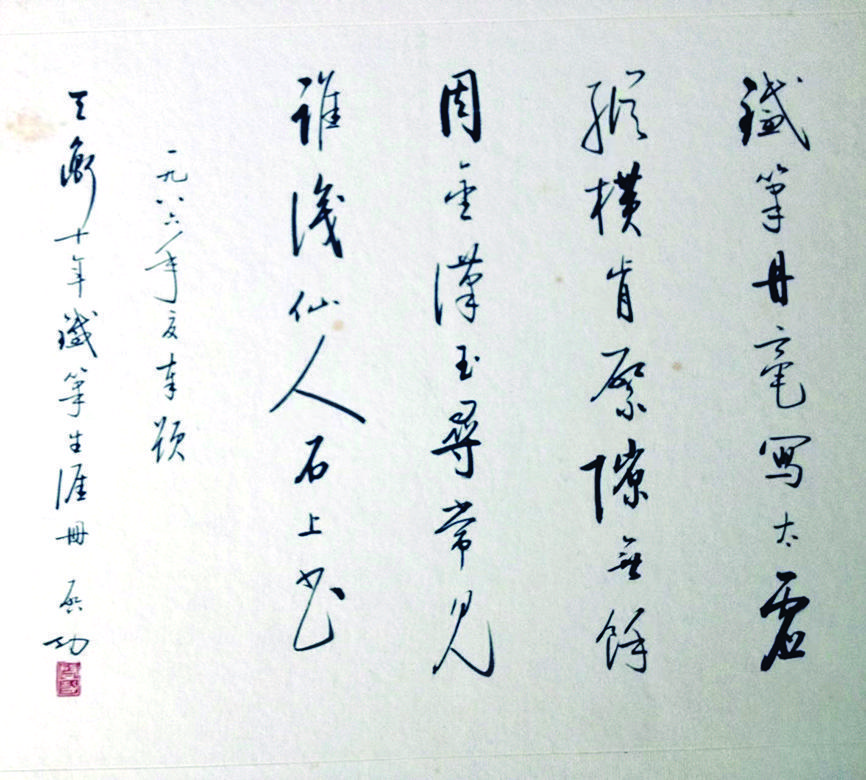 鐵筆丹毫寫太虛
縱橫肯綮隙無餘
周金漢玉尋常見
誰識仙人石上書
一九八六年夏奉題
天衡十年鐵筆生涯冊 啟功